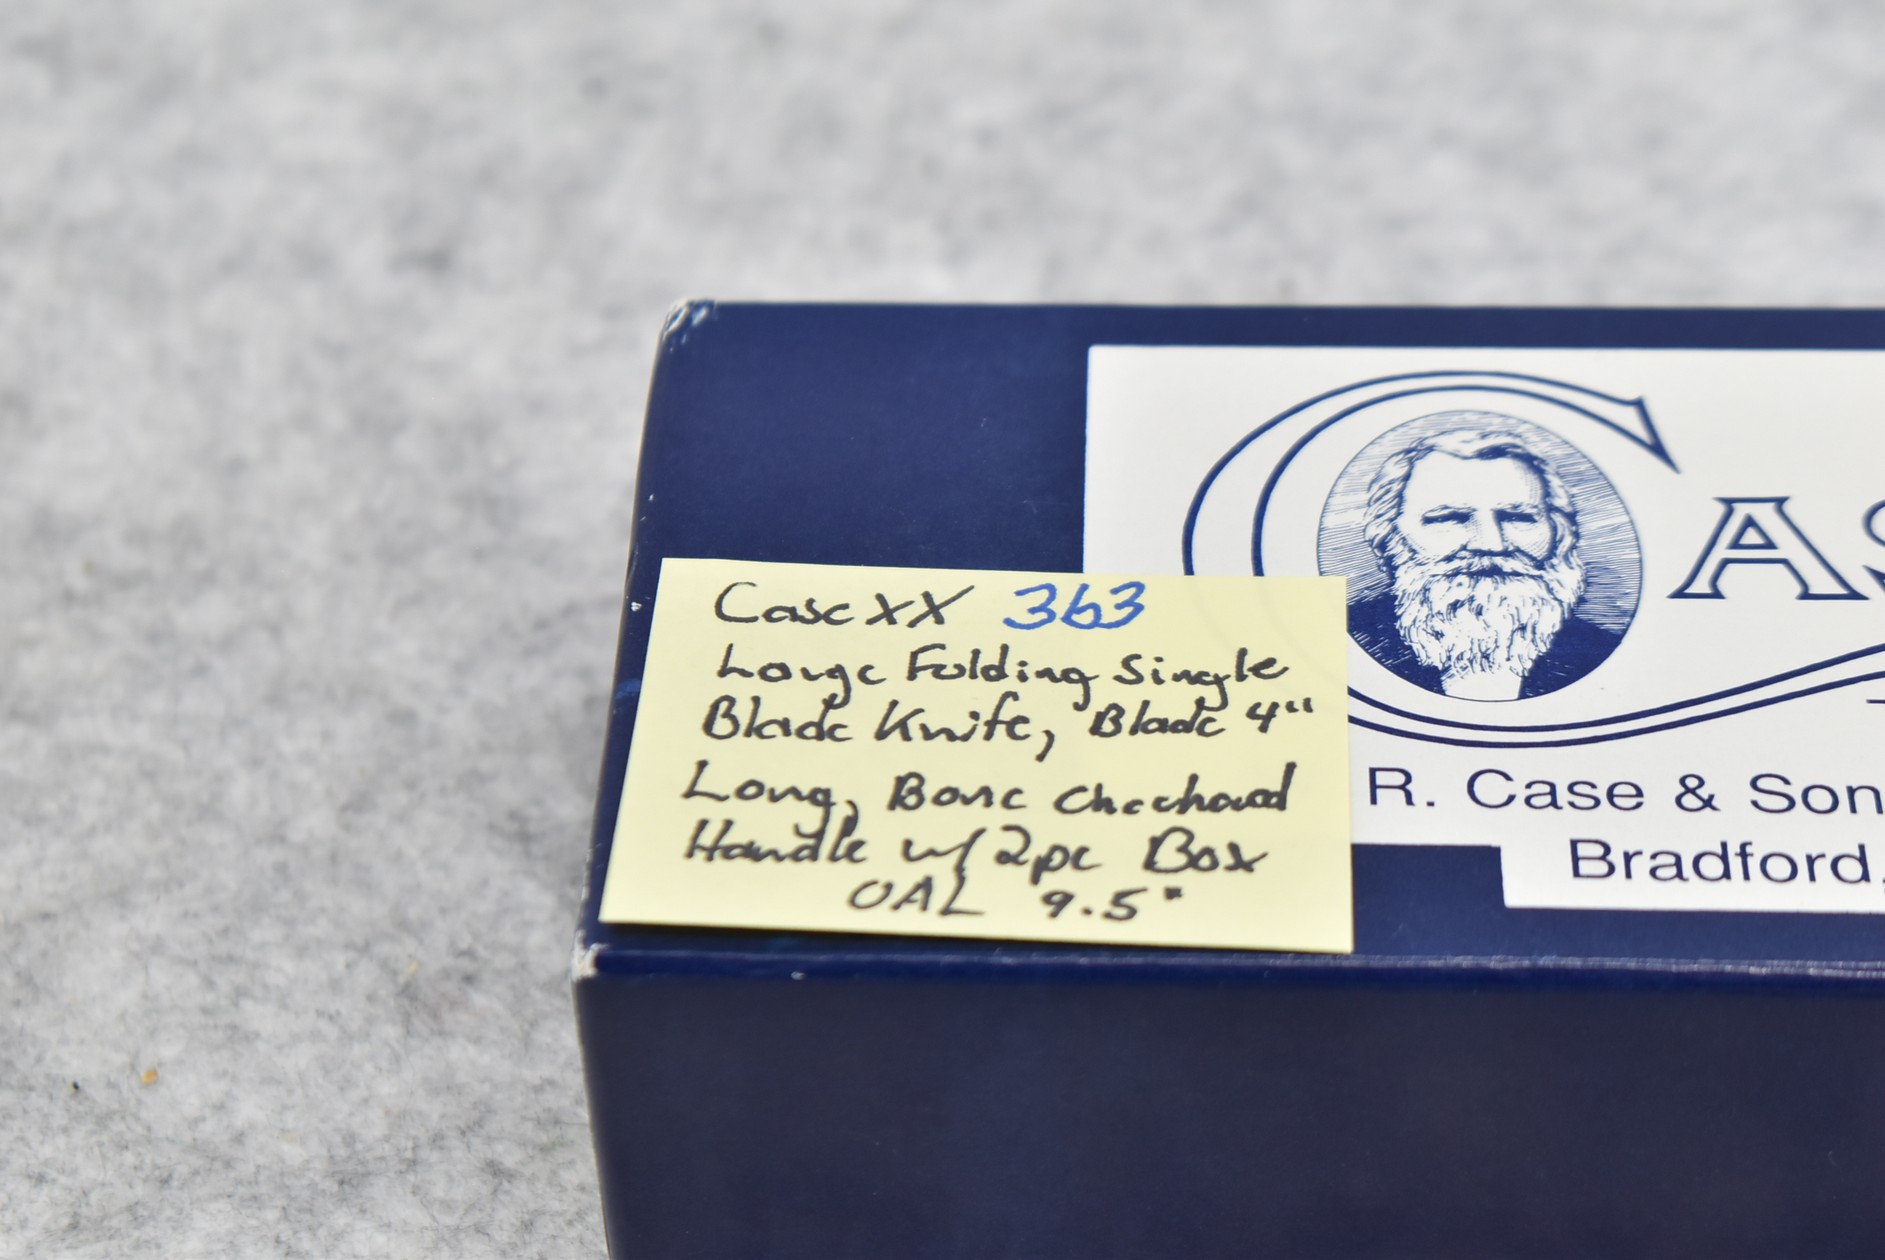 Case XX 363
Large Folding Single
Blade Knife, Blade 4"
Long, Bone Checkered
Handle w/ 2pc Box
OAL 9.5"
CAS
R. Case & Son
Bradford,